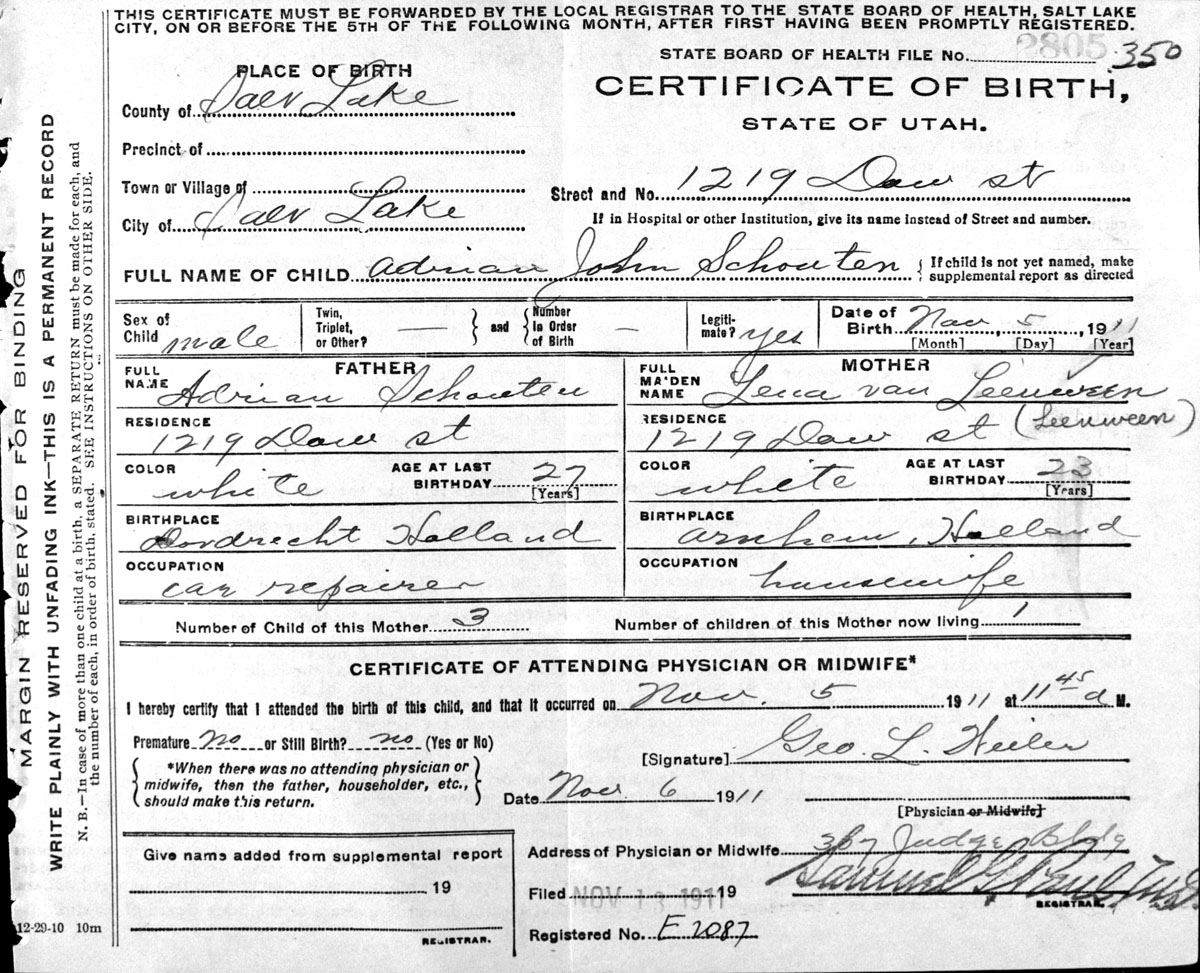 THIS CERTIFICATE MUST BE FORWARDED BY THE LOCAL REGISTRAR TO THE STATE BOARD OF HEALTH, SALT LAKE
CITY, ON OR BEFORE THE 5TH OF THE FOLLOWING MONTH, AFTER FIRST HAVING BEEN PROMPTLY REGISTERED.
STATE BOARD OF HEALTH FILE NO. 2805 350
PLACE OF BIRTH
CERTIFICATE OF BIRTH,
STATE OF UTAH.
County of Salt Lake
Precinct of
Town or Village of
Street and No. 1219 Daw st
City of Salt Lake
If in Hospital or other Institution, give its name instead of Street and number.
FULL NAME OF CHILD Adrian John Schouten { If child is not yet named, make
supplemental report as directed
Sex of Child male
Twin, Triplet, or Other? — } and { Number in Order of Birth —
Legitimate? yes
Date of Birth Nov 5, 1911
[Month] [Day] [Year]
FATHER
MOTHER
FULL NAME Adrian Schouten
FULL MAIDEN NAME Lena van Leeuween
(Leenween)
RESIDENCE 1219 Daw st
RESIDENCE 1219 Daw st
COLOR white AGE AT LAST BIRTHDAY 27 [Years]
COLOR white AGE AT LAST BIRTHDAY 23 [Years]
BIRTHPLACE Dordrecht Holland
BIRTHPLACE Arnhem, Holland
OCCUPATION car repairer
OCCUPATION housewife
Number of Child of this Mother 3
Number of children of this Mother now living 1
CERTIFICATE OF ATTENDING PHYSICIAN OR MIDWIFE*
I hereby certify that I attended the birth of this child, and that it occurred on Nov. 5 1911 at 11 45 a M.
Premature no or Still Birth? no (Yes or No)
[Signature] Geo. L. Weiler
{ *When there was no attending physician or
midwife, then the father, householder, etc.,
should make this return. }
Date Nov. 6 1911
[Physician or Midwife]
Give name added from supplemental report
19
REGISTRAR.
Address of Physician or Midwife 367 Judge Bldg
Filed NOV 13 1911 19
Samuel G. Paul M.D.
REGISTRAR.
Registered No. E 2087
12-29-10 10m
MARGIN RESERVED FOR BINDING
WRITE PLAINLY WITH UNFADING INK—THIS IS A PERMANENT RECORD
N. B.—In case of more than one child at a birth, a SEPARATE RETURN must be made for each, and
the number of each, in order of birth, stated. SEE INSTRUCTIONS ON OTHER SIDE.